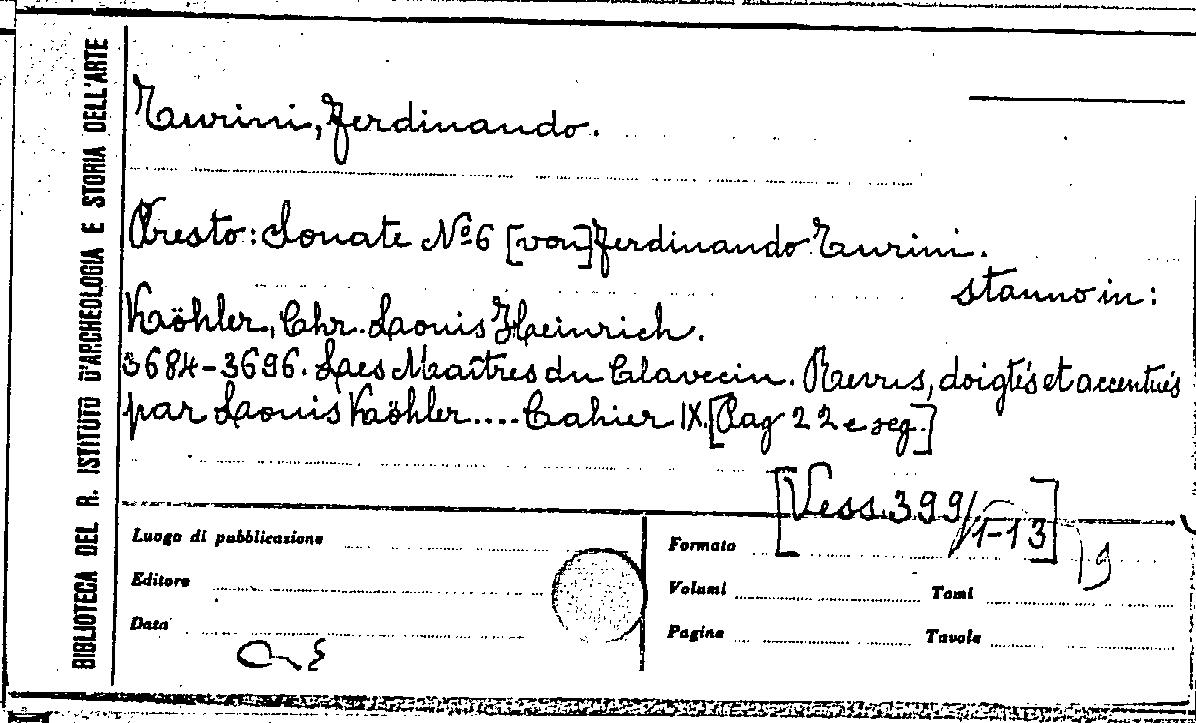 BIBLIOTECA DEL R. ISTITUTO D'ARCHEOLOGIA E STORIA DELL'ARTE
Turini, Ferdinando.
Presto: Sonate Nº 6 [von] Ferdinando Turini.
stanno in:
Köhler, Chr. Louis Heinrich.
3684-3696. Les Maîtres du Clavecin. Revus, doigtés et accentués
par Louis Köhler.... Cahier IX. [Pag 22 e seg.]
[Vess. 399/1-13]
9
Luogo di pubblicazione
Editore
Data
Formato
Volumi
Tomi
Pagine
Tavole